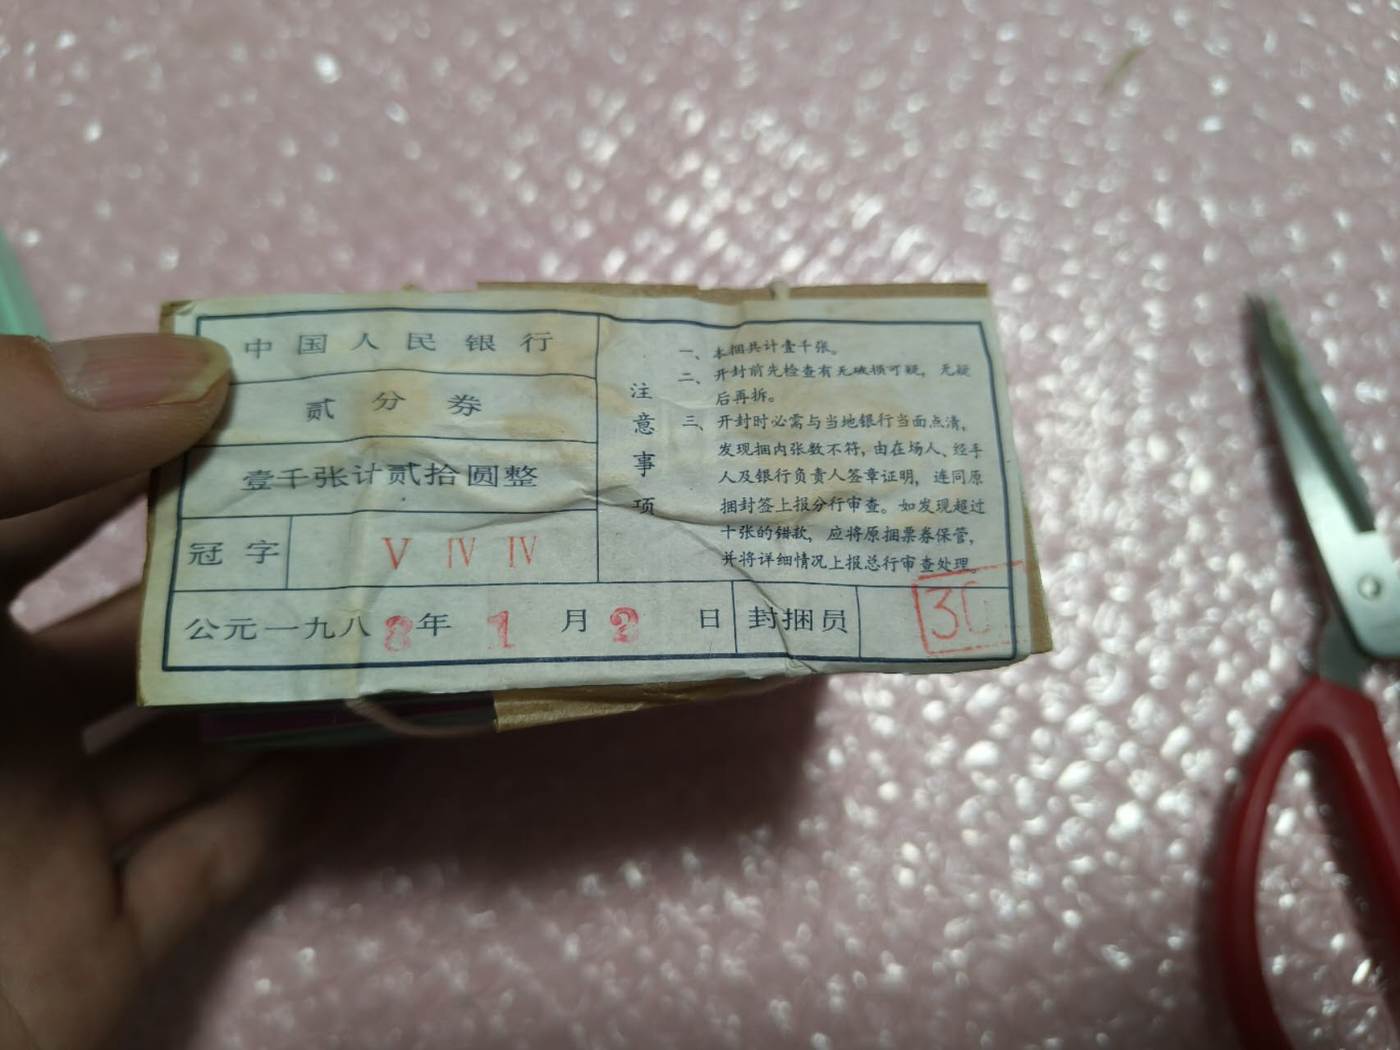 中国人民银行
贰分券
壹千张计贰拾圆整
冠字 V IV IV
公元一九八8年 1 月 2 日 封捆员
注意事项
一、本捆共计壹千张。
二、开封前先检查有无破损可疑，无疑
后再拆。
三、开封时必需与当地银行当面点清，
发现捆内张数不符，由在场人、经手
人及银行负责人签章证明，连同原
捆封签上报分行审查。如发现超过
十张的错款，应将原捆票券保管，
并将详细情况上报总行审查处理。